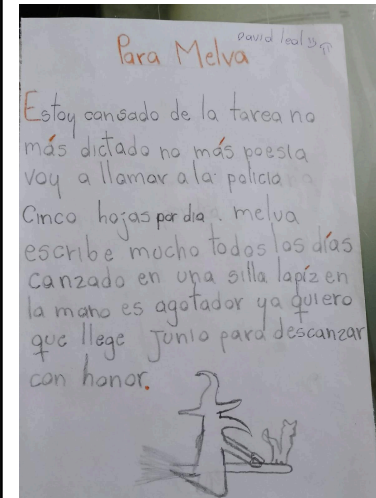 David leal
Para Melva
Estoy cansado de la tarea no
más dictado no más poesía
voy a llamar a la policia
Cinco hojas por dia. melva
escribe mucho todos los días
canzado en una silla lapíz en
la mano es agotador ya quiero
que llege Junio para descanzar
con honor.